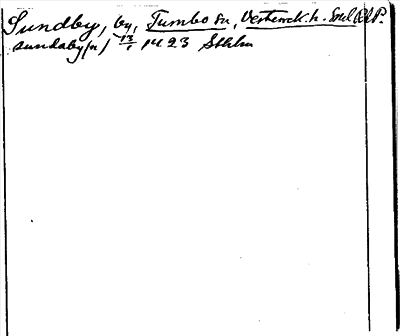 Sundby, by, Tumbo sn, Västerrek. h. Söd
sundaby(n) 13/1 1423 Sthlm